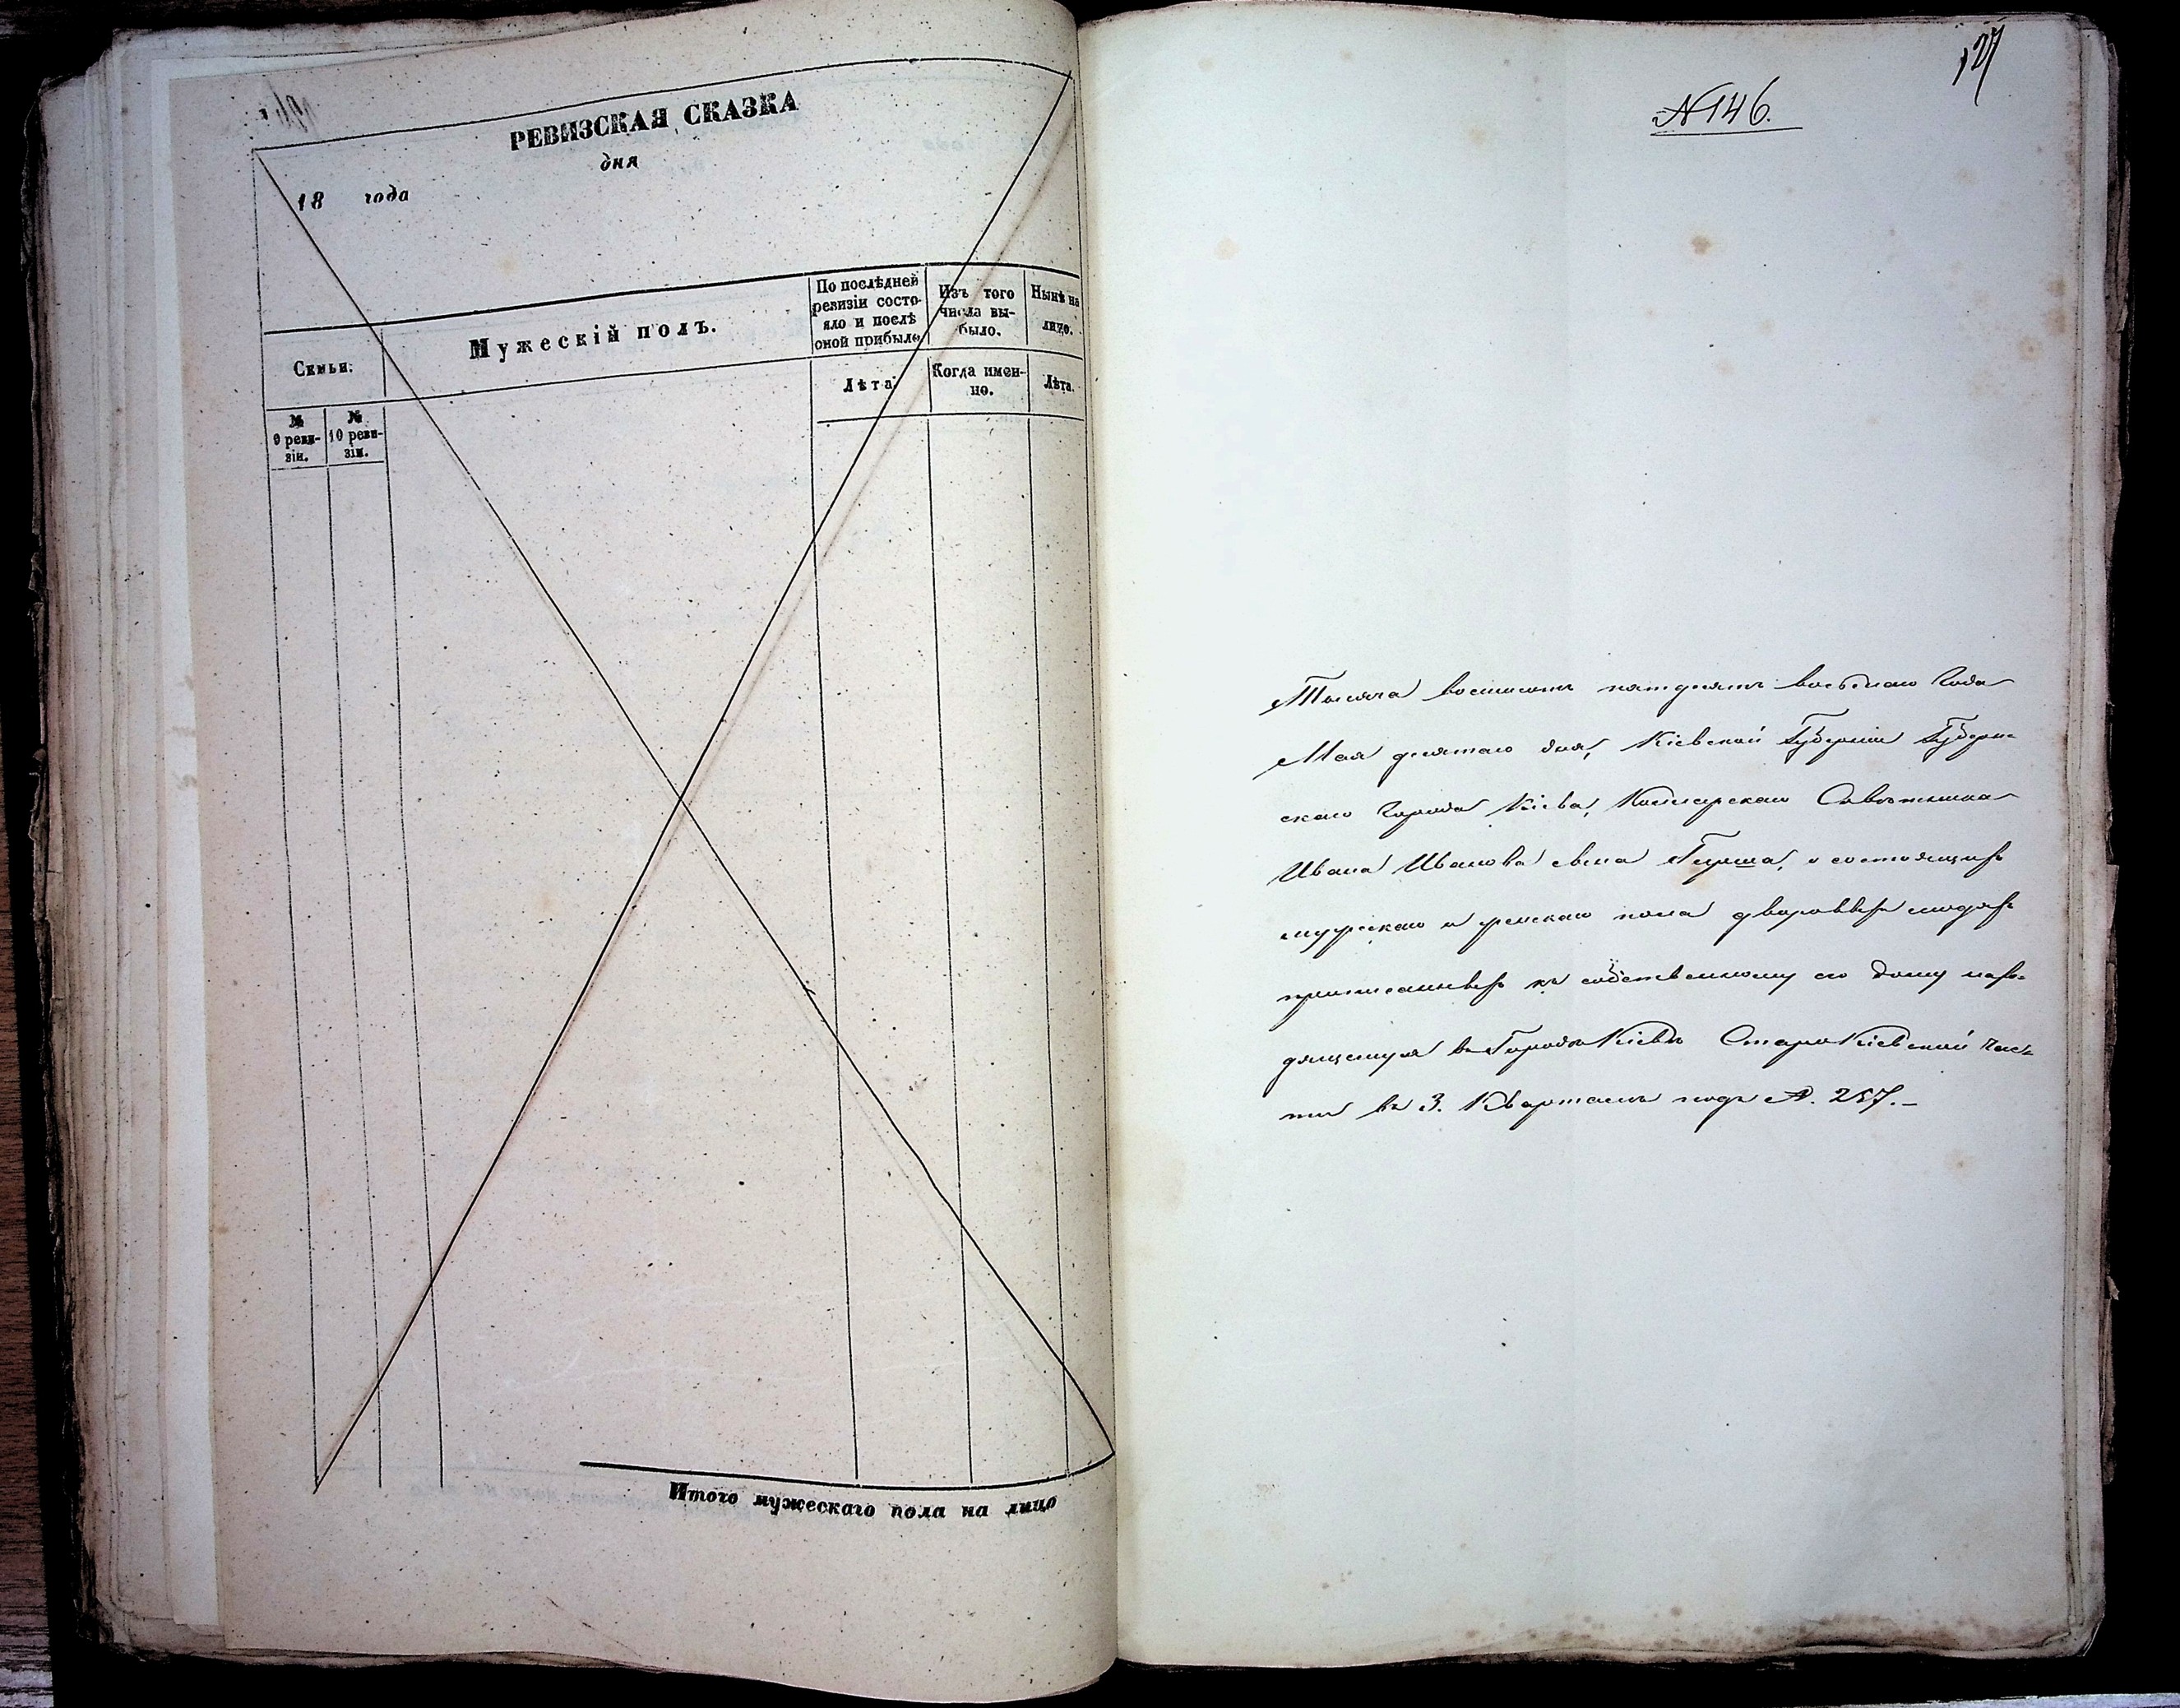 РЕВИЗСКАЯ СКАЗКА
дня
18 года
Семьи.
Мужескій полъ.
По послѣдней
ревизіи состо-
яло и послѣ
оной прибыло
Изъ того
числа вы-
было.
Нынѣ на
лицо.
Лѣта.
Когда имен-
но.
Лѣта.
№
9 реви-
зіи.
№
10 реви-
зіи.
Итого мужескаго пола на лицо
127
№ 146.
Тысяча восемсотъ пятдесятъ восьмаго Года
Мая девятаго дня, Кіевской Губерніи Губерн-
скаго Города Кіева, Коллежскаго Совѣтника
Ивана Иванова сына, о состоящихъ
мужскаго и женскаго пола дворовыхъ людяхъ
приписанныхъ къ собственному его дому нахо-
дящемуся въ Городѣ Кіевѣ Старокіевской час-
ти въ 3. Кварталѣ подъ №. 257.-